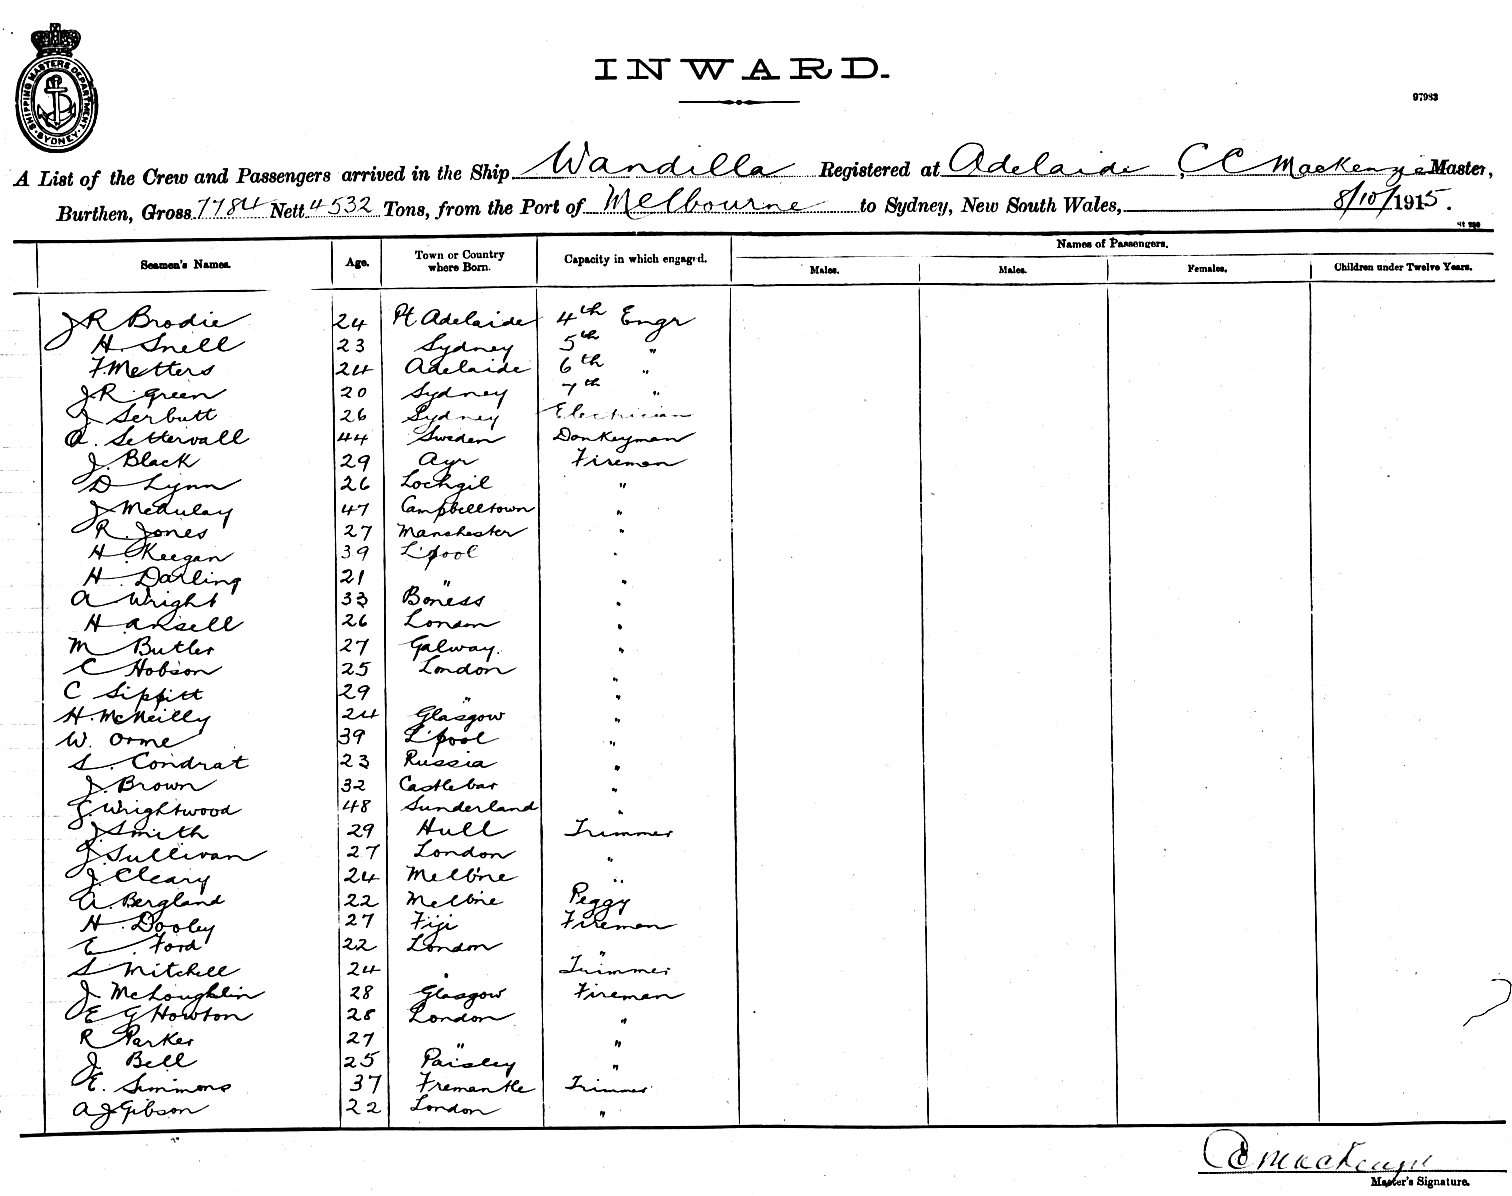 SHIPPING MASTERS DEPARTMENT · SYDNEY ·
INWARD.
97983
A List of the Crew and Passengers arrived in the Ship Wandilla Registered at Adelaide C C Mackenzie Master,
Burthen, Gross 7784 Nett 4532 Tons, from the Port of Melbourne to Sydney, New South Wales, 8/10/1915.
Seamen's Names. Age. Town or Country where Born. Capacity in which engaged. Names of Passengers.
Males. Males. Females. Children under Twelve Years.
J R Brodie 24 Pt Adelaide 4th Engr
H. Snell 23 Sydney 5th "
F. Metters 24 Adelaide 6th "
J. R. Green 20 Sydney 7th "
J Serbutt 26 Sydney Electrician
A. Settervall 44 Sweden Donkeyman
J. Black 29 Ayr Fireman
D Lynn 26 Lochgil "
J McAulay 47 Campbelltown "
R. Jones 27 Manchester "
H. Keegan 39 L'pool "
H. Darling 21 " "
A Wright 33 Boness "
H Ansell 26 London "
M Butler 27 Galway. "
C Hobson 25 London "
C Sippitt 29 " "
H. McNeilly 24 Glasgow "
W. Orme 39 L'pool "
S. Condrat 23 Russia "
J. Brown 32 Castlebar "
J. Wrightwood 48 Sunderland "
J Smith 29 Hull Trimmer
J Sullivan 27 London "
J. Cleary 24 Melb'ne "
A. Bergland 22 Melb'ne Peggy
H. Dooley 27 Fiji Fireman
E. Ford 22 London "
S Mitchell 24 " Trimmer
J McLoughlin 28 Glasgow Fireman
E G Howton 28 London "
R Parker 27 " "
J Bell 25 Paisley "
E. Simmons 37 Fremantle Trimmer
A J Gibson 22 London "
CC Mackenzie
Master's Signature.